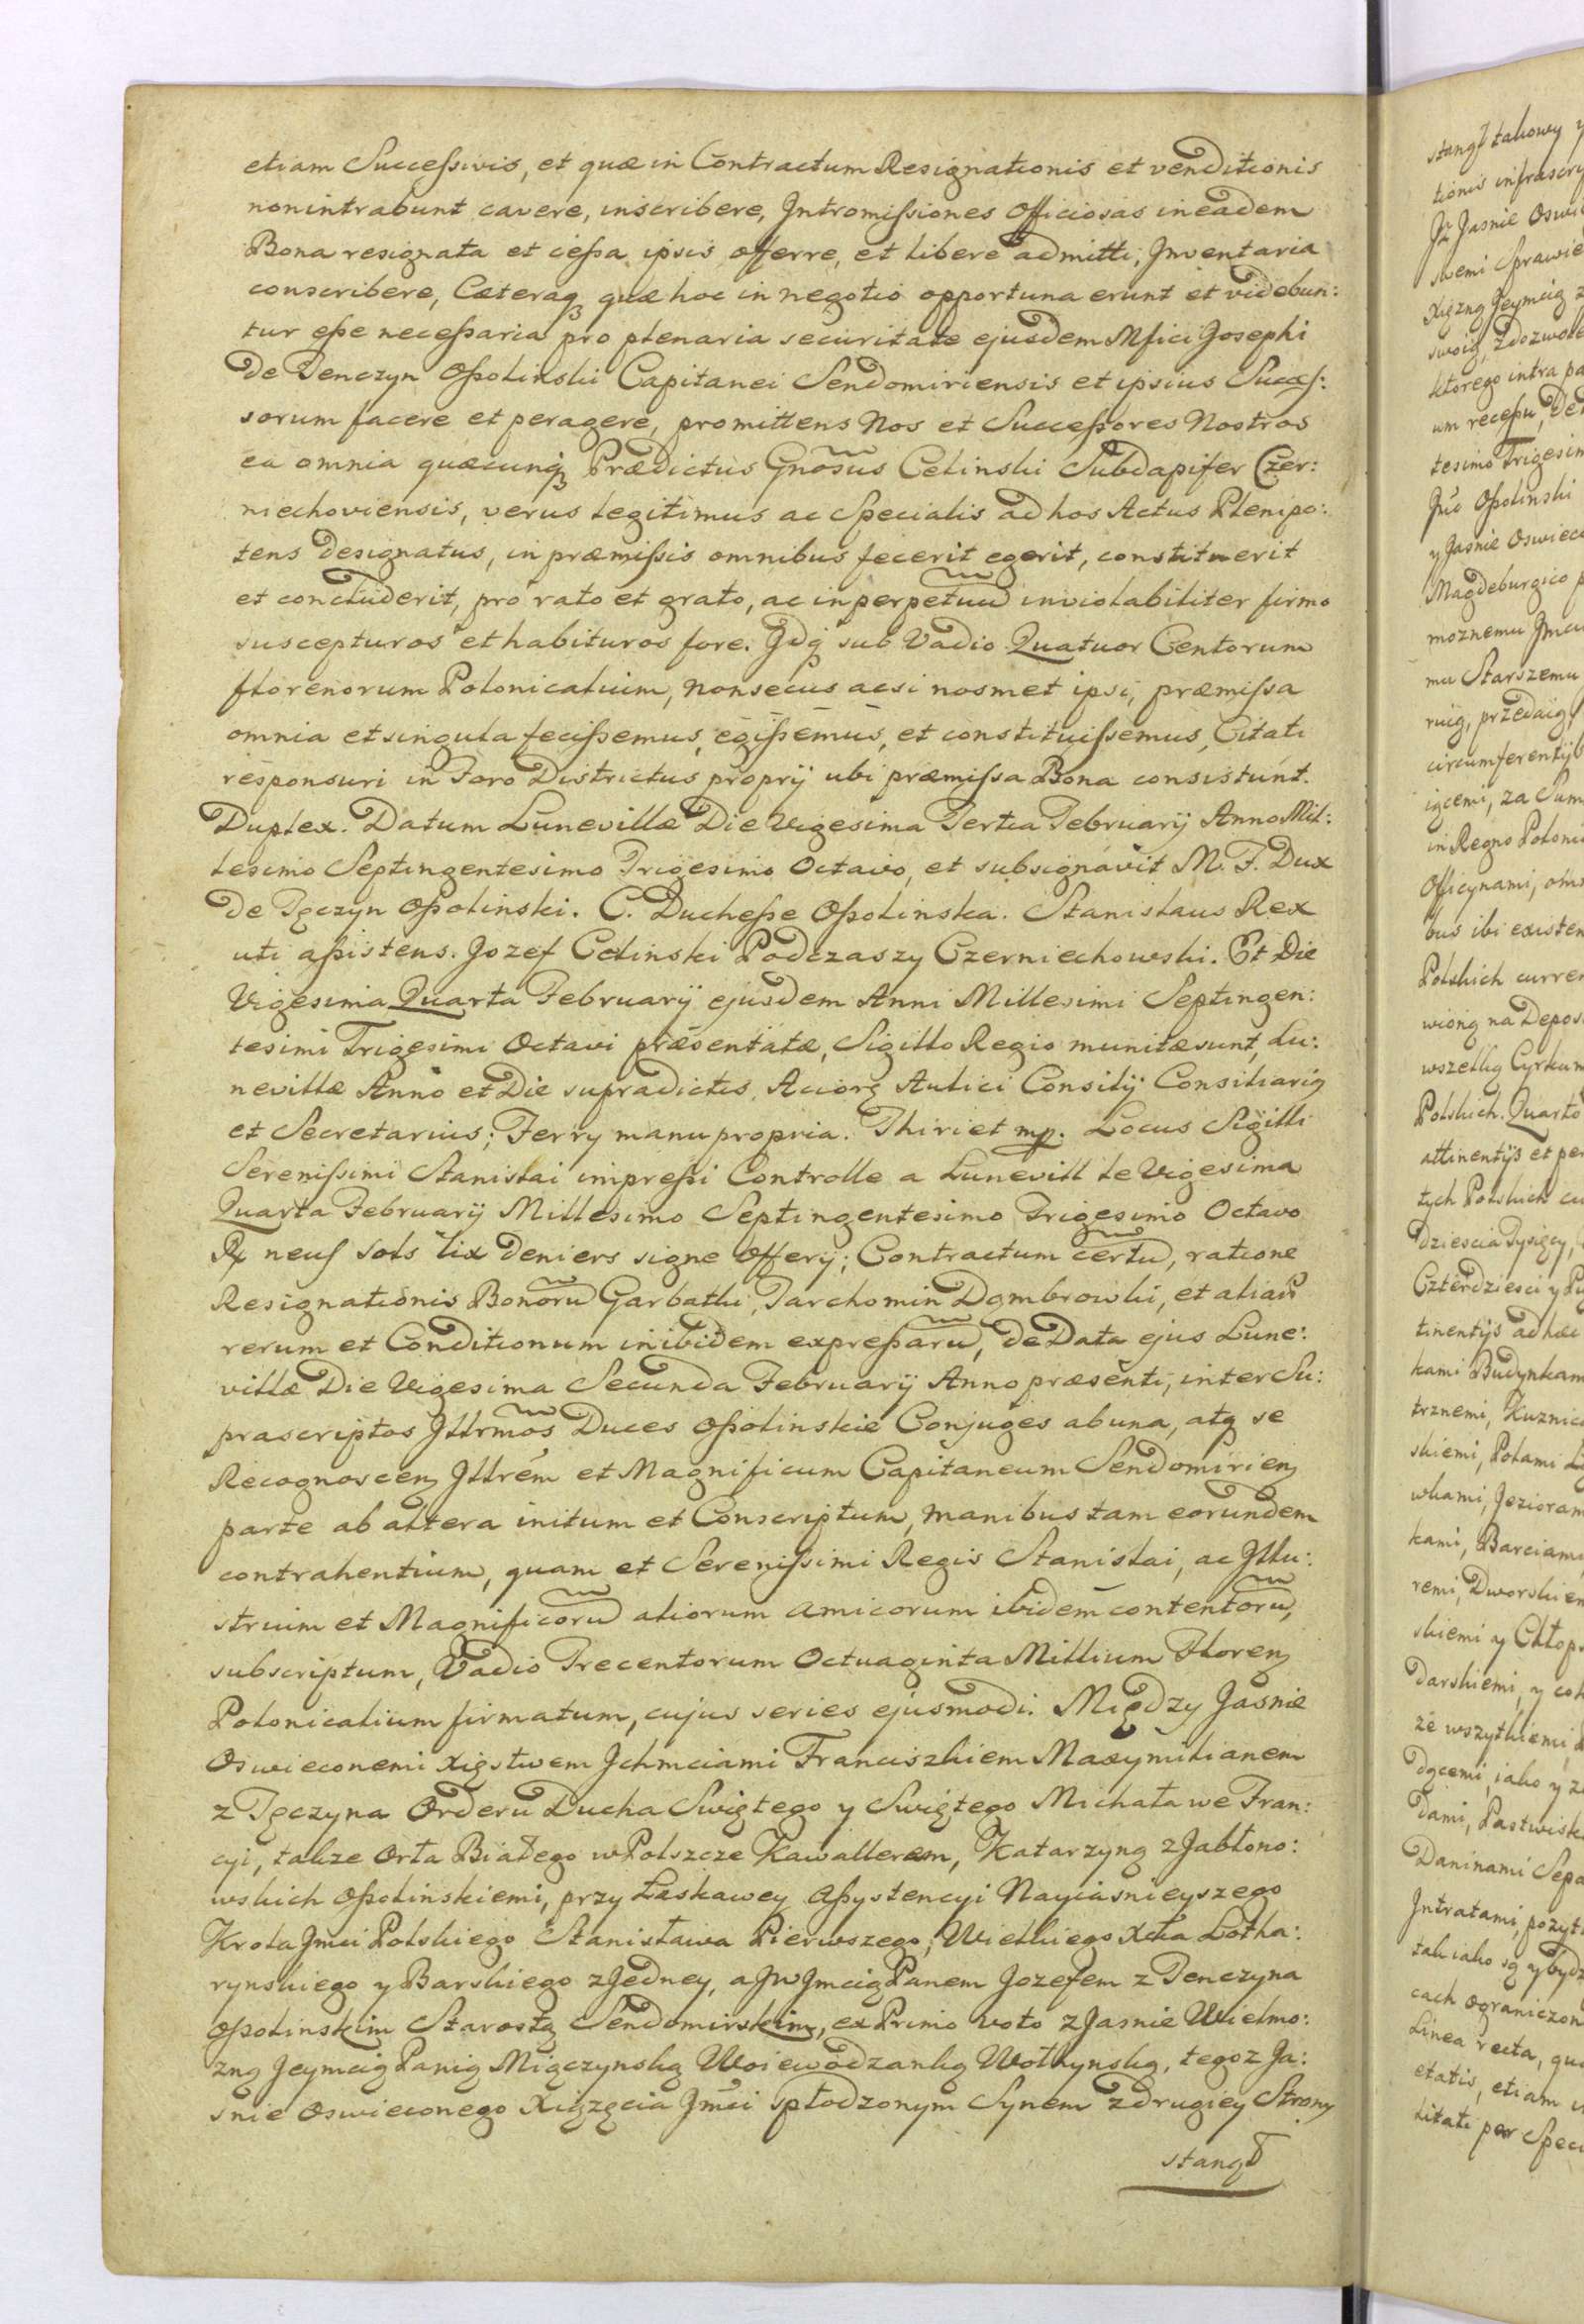 etiam Successivis, et quæ in Contractum Resignationis et venditionis
nonintrabunt cavere, inscribere, Intromissiones Officiosas in eadem
Bona resignata et cessa ipsis offerre, et libere admitti, Inventaria
conscribere, Cæteraqꝫ quæ hoc in negotio opportuna erunt et videbun:
tur esse necessaria pro plenaria securitate ejusdem Mfici Josephi
de Tenczyn Ossolinski Capitanei Sendomiriensis et ipsius Succes:
sorum facere et peragere, promittens Nos et Successores Nostros
ea omnia quæcunqꝫ Prædictus Gnõsus Celinski Subdapifer Czer:
niechoviensis, verus legitimus ac Specialis ad hos Actus Plenipo:
tens designatus, in præmissis omnibus fecerit egerit, constituerit
et concluderit, pro rato et grato, ac in perpetuũ inviolabiliter firmo
suscepturos et habituros fore. Idqꝫ sub Vadio Quatuor Centorum
florenorum Polonicalium, nonsecus acsi nosmet ipsi, præmissa
omnia et singula fecissemus, egissemus, et constituissemus, Citati
responsuri in Foro Districtus proprij ubi præmissa Bona consistunt.
Duplex. Datum Lunevillæ Die Vigesima Tertia February Anno Mil:
lesimo Septingentesimo Trigesimo Octavo, et subsignavit M. F. Dux
de Tęczyn Ossolinski. C. Duchesse Ossolinska. Stanislaus Rex
uti assistens. Jozef Celinski Podczaszy Czerniechowski. Et Die
Vigesima Quarta February ejusdem Anni Millesimi Septingen:
tesimi Trigesimi Octavi præsentatæ, Sigillo Regio munitæ sunt, Lu:
nevillæ Anno et Die supradictis, Aciorꝫ Aulici Consilij Consiliariꝫ
et Secretarius; Ferry manu propria. Thiriet mp. Locus Sigilli
Serenissimi Stanislai impressi Controlle a Lunevill le Vigesima
Quarta February Millesimo Septingentesimo Trigesimo Octavo
Rx neuf sols lix deniers signe Offery; Contractum certũ, ratione
Resignationis Bonorũ Garbatki, Tarchomin Dąmbrowki, et aliarũ
rerum et Conditionum inibidem expressarũ, de Data ejus Lune:
villæ Die Vigesima Secunda February Anno præsenti, inter Su:
prascriptos Illrmõs Duces Ossolinskie Conjuges ab una, atqꝫ se
Recognoscenꝫ Illrem et Magnificum Capitaneum Sendomirienꝫ
parte ab altera initum et Conscriptum, manibus tam eorundem
contrahentium, quam et Serenissimi Regis Stanislai, ac Illu:
strium et Magnificorũ aliorum amicorum ibidem contentorũ,
subscriptum, Vadio Trecentorum Octuaginta Millium Florenꝫ
Polonicalium firmatum, cujus series ejusmodi. Między Jasnie
Oswieconemi Xięstwem Ichmciami Franciszkiem Maxymilianem
z Tęczyna Orderu Ducha Swiętego y Swiętego Michała we Fran:
cyi, także Orła Białego w Polszcze Kawallerem, Katarzyną z Jabłono:
wskich Ossolinskiemi, przy Łaskawey Assystencyi Nayiasnieyszego
Krola Jmci Polskiego Stanisława Pierwszego, Wielkiego Xcia Lotha:
rynskiego y Barskiego z Jedney, a JW Jmcią Panem Jozefem z Tenczyna
Ossolinskim Starostą Sendomirskim, ex Primo voto z Jasnie Wielmo:
zną Jeymcią Panią Miączynską Woiewodzanką Wołhynską, tegoz Ja:
snie Oswieconego Xiążęcia Jmci spłodzonym Synem z drugiey Strony
stanął